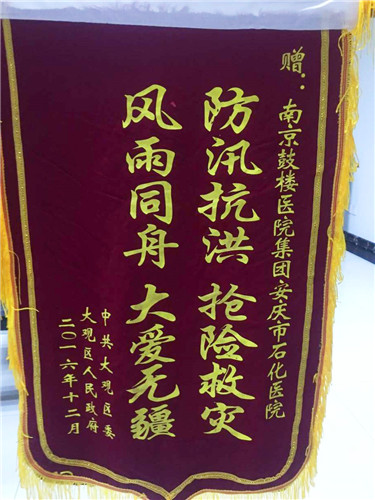 赠：南京鼓楼医院集团安庆市石化医院
防汛抗洪 抢险救灾
风雨同舟 大爱无疆
中共大观区委
大观区人民政府
二〇一六年十二月